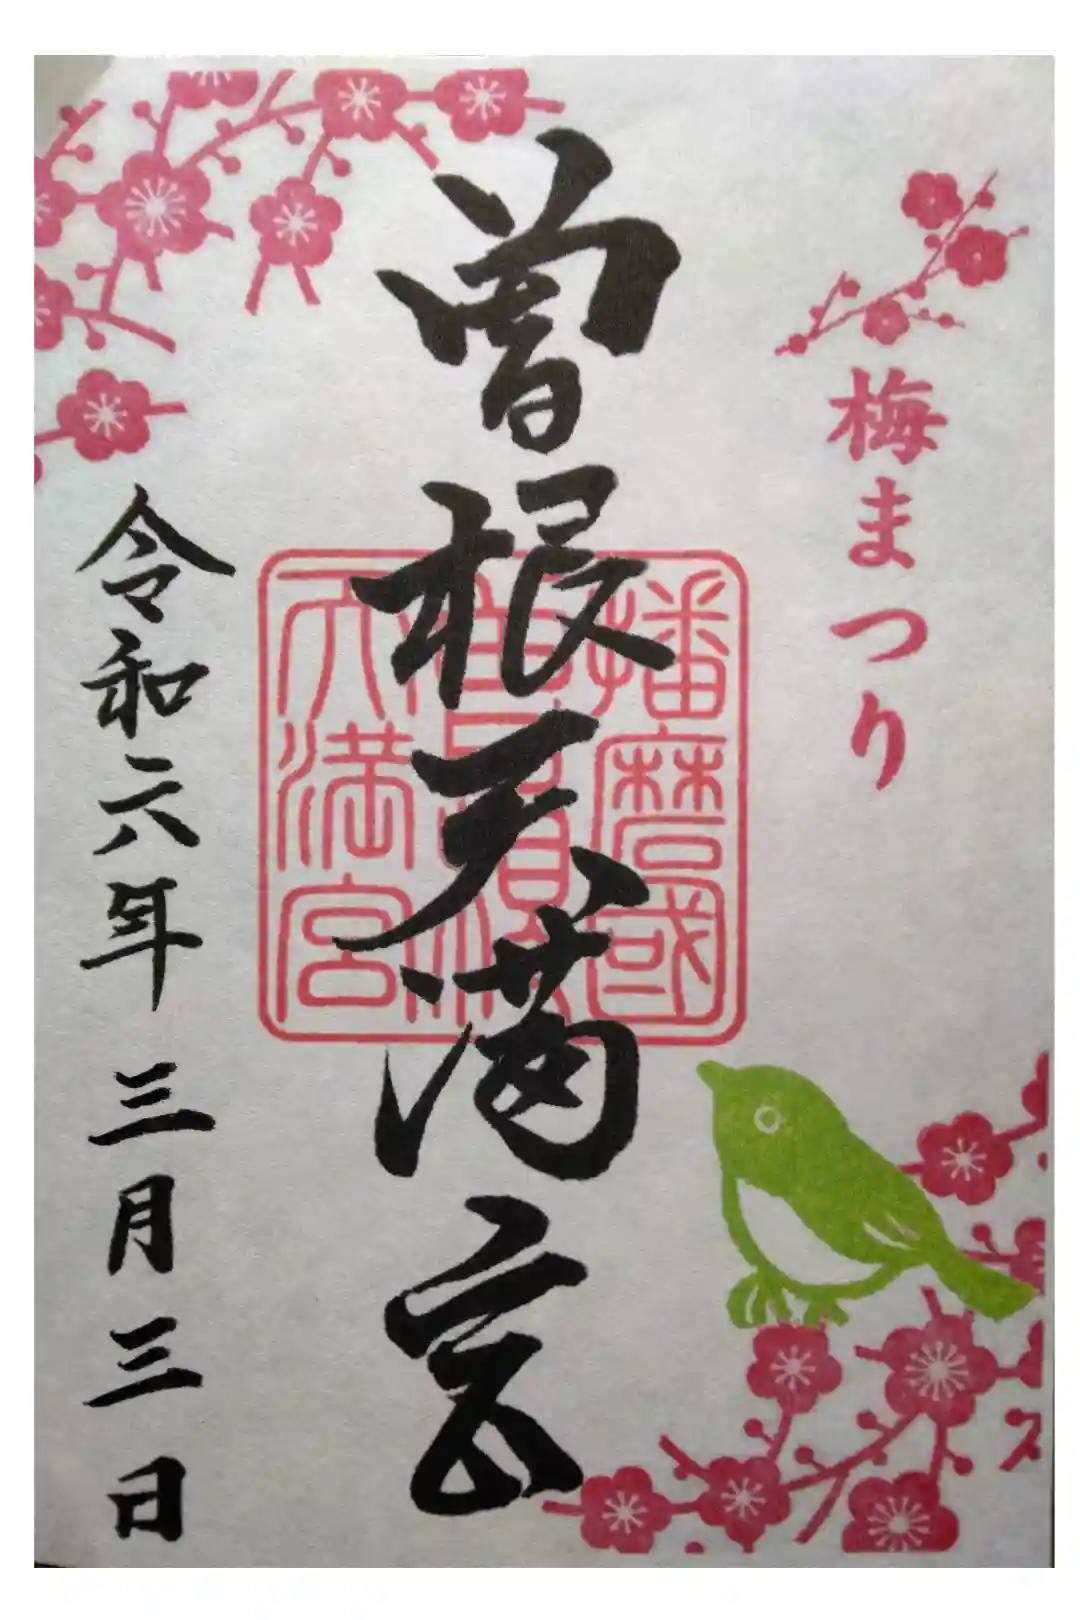 梅まつり
曽根天満宮
播磨國
天満宮
令和六年三月三日